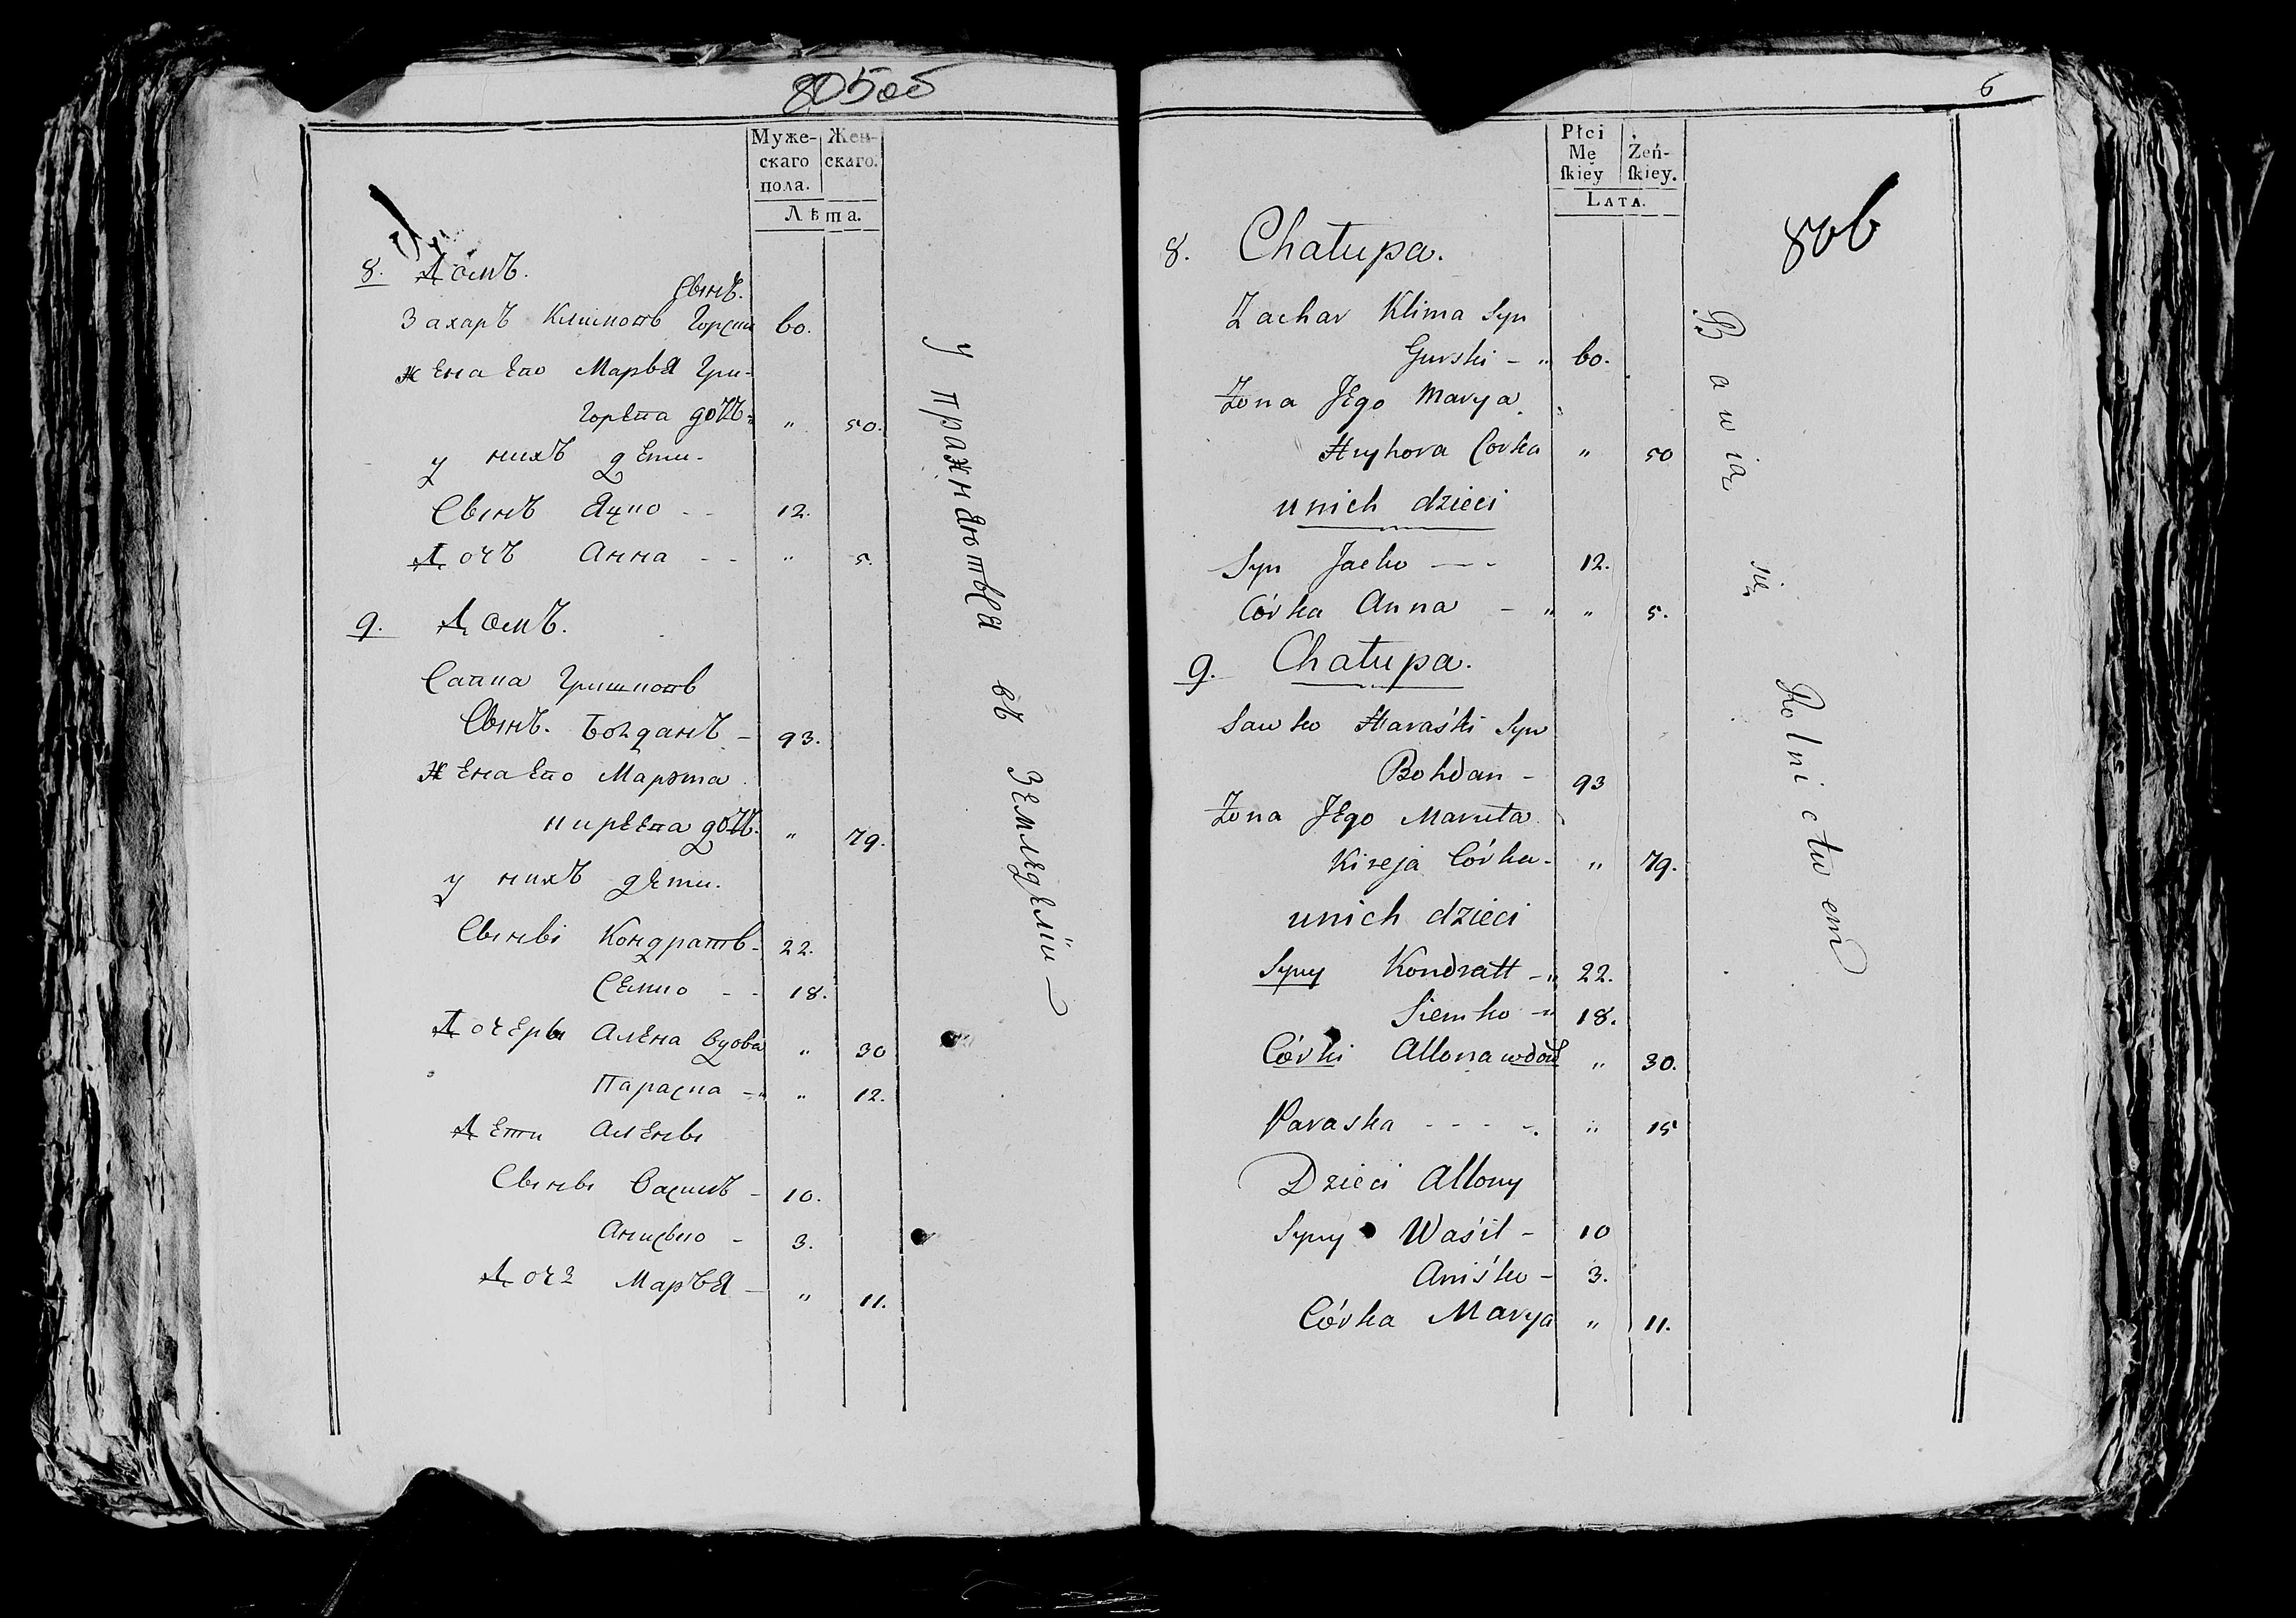 805об
Муже- Жен-
скаго скаго.
пола.
Лѣта.
8. Домъ.
Сынъ.
Захаръ Климовъ Горски 60.
Жена его Марья Гри-
горева дочь " 50.
у нихъ дети.
Сынъ Яцко - - 12.
Дочъ Анна - - " 5.
9. Домъ.
Савка Гришковъ
Сынъ. Богданъ - 93.
Жена его Марута
кирѣева дочь. " 79.
у нихъ дѣти.
Сыны Кондратъ - 22.
Семко - - 18.
Дочеры Алена вдова " 30
Параска - " " 12.
Дети Алены
Сыны Василъ - 10.
Анисько - 3.
Дочь Марья - " 11.
Упражняются въ Земледѣліи
6
Płci
Mę Żeń-
ſkiey ſkiey.
LATA.
806
8. Chałupa.
Zachar Klima Syn
Gurski - " 60.
Żona Jego Marya
Hryhora Corka " 50
unich dzieci
Syn Jacko - - - 12.
Córka Anna - " " 5.
9. Chałupa.
Sawko Haraśki Syn
Bohdan - 93
Żona Jego Maruta
Kireja Córka - " 79.
unich dzieci
Syny Kondratt - " 22.
Siemko - " 18.
Córki Allona wdow " 30.
Paraska - - - -. " 15
Dzieci Allony
Syny Waśil - 10
Aniśko - 3.
Córka Marya " 11.
Bawią się Rolnictwem